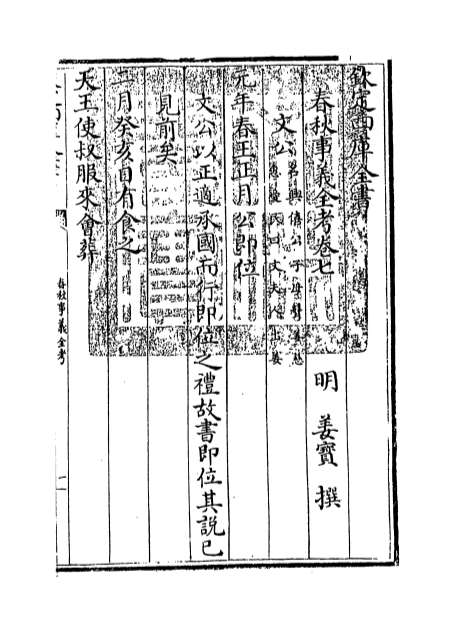 欽定四庫全書
春秋事義全考卷七
明 姜寶 撰
文公名興僖公子母聲姜
文夫人出姜
元年春王正月公即位
文公以正適承國而行即位之禮故書即位其說已
見前矣
二月癸亥日有食之
天王使叔服來會葬
春秋事義全考